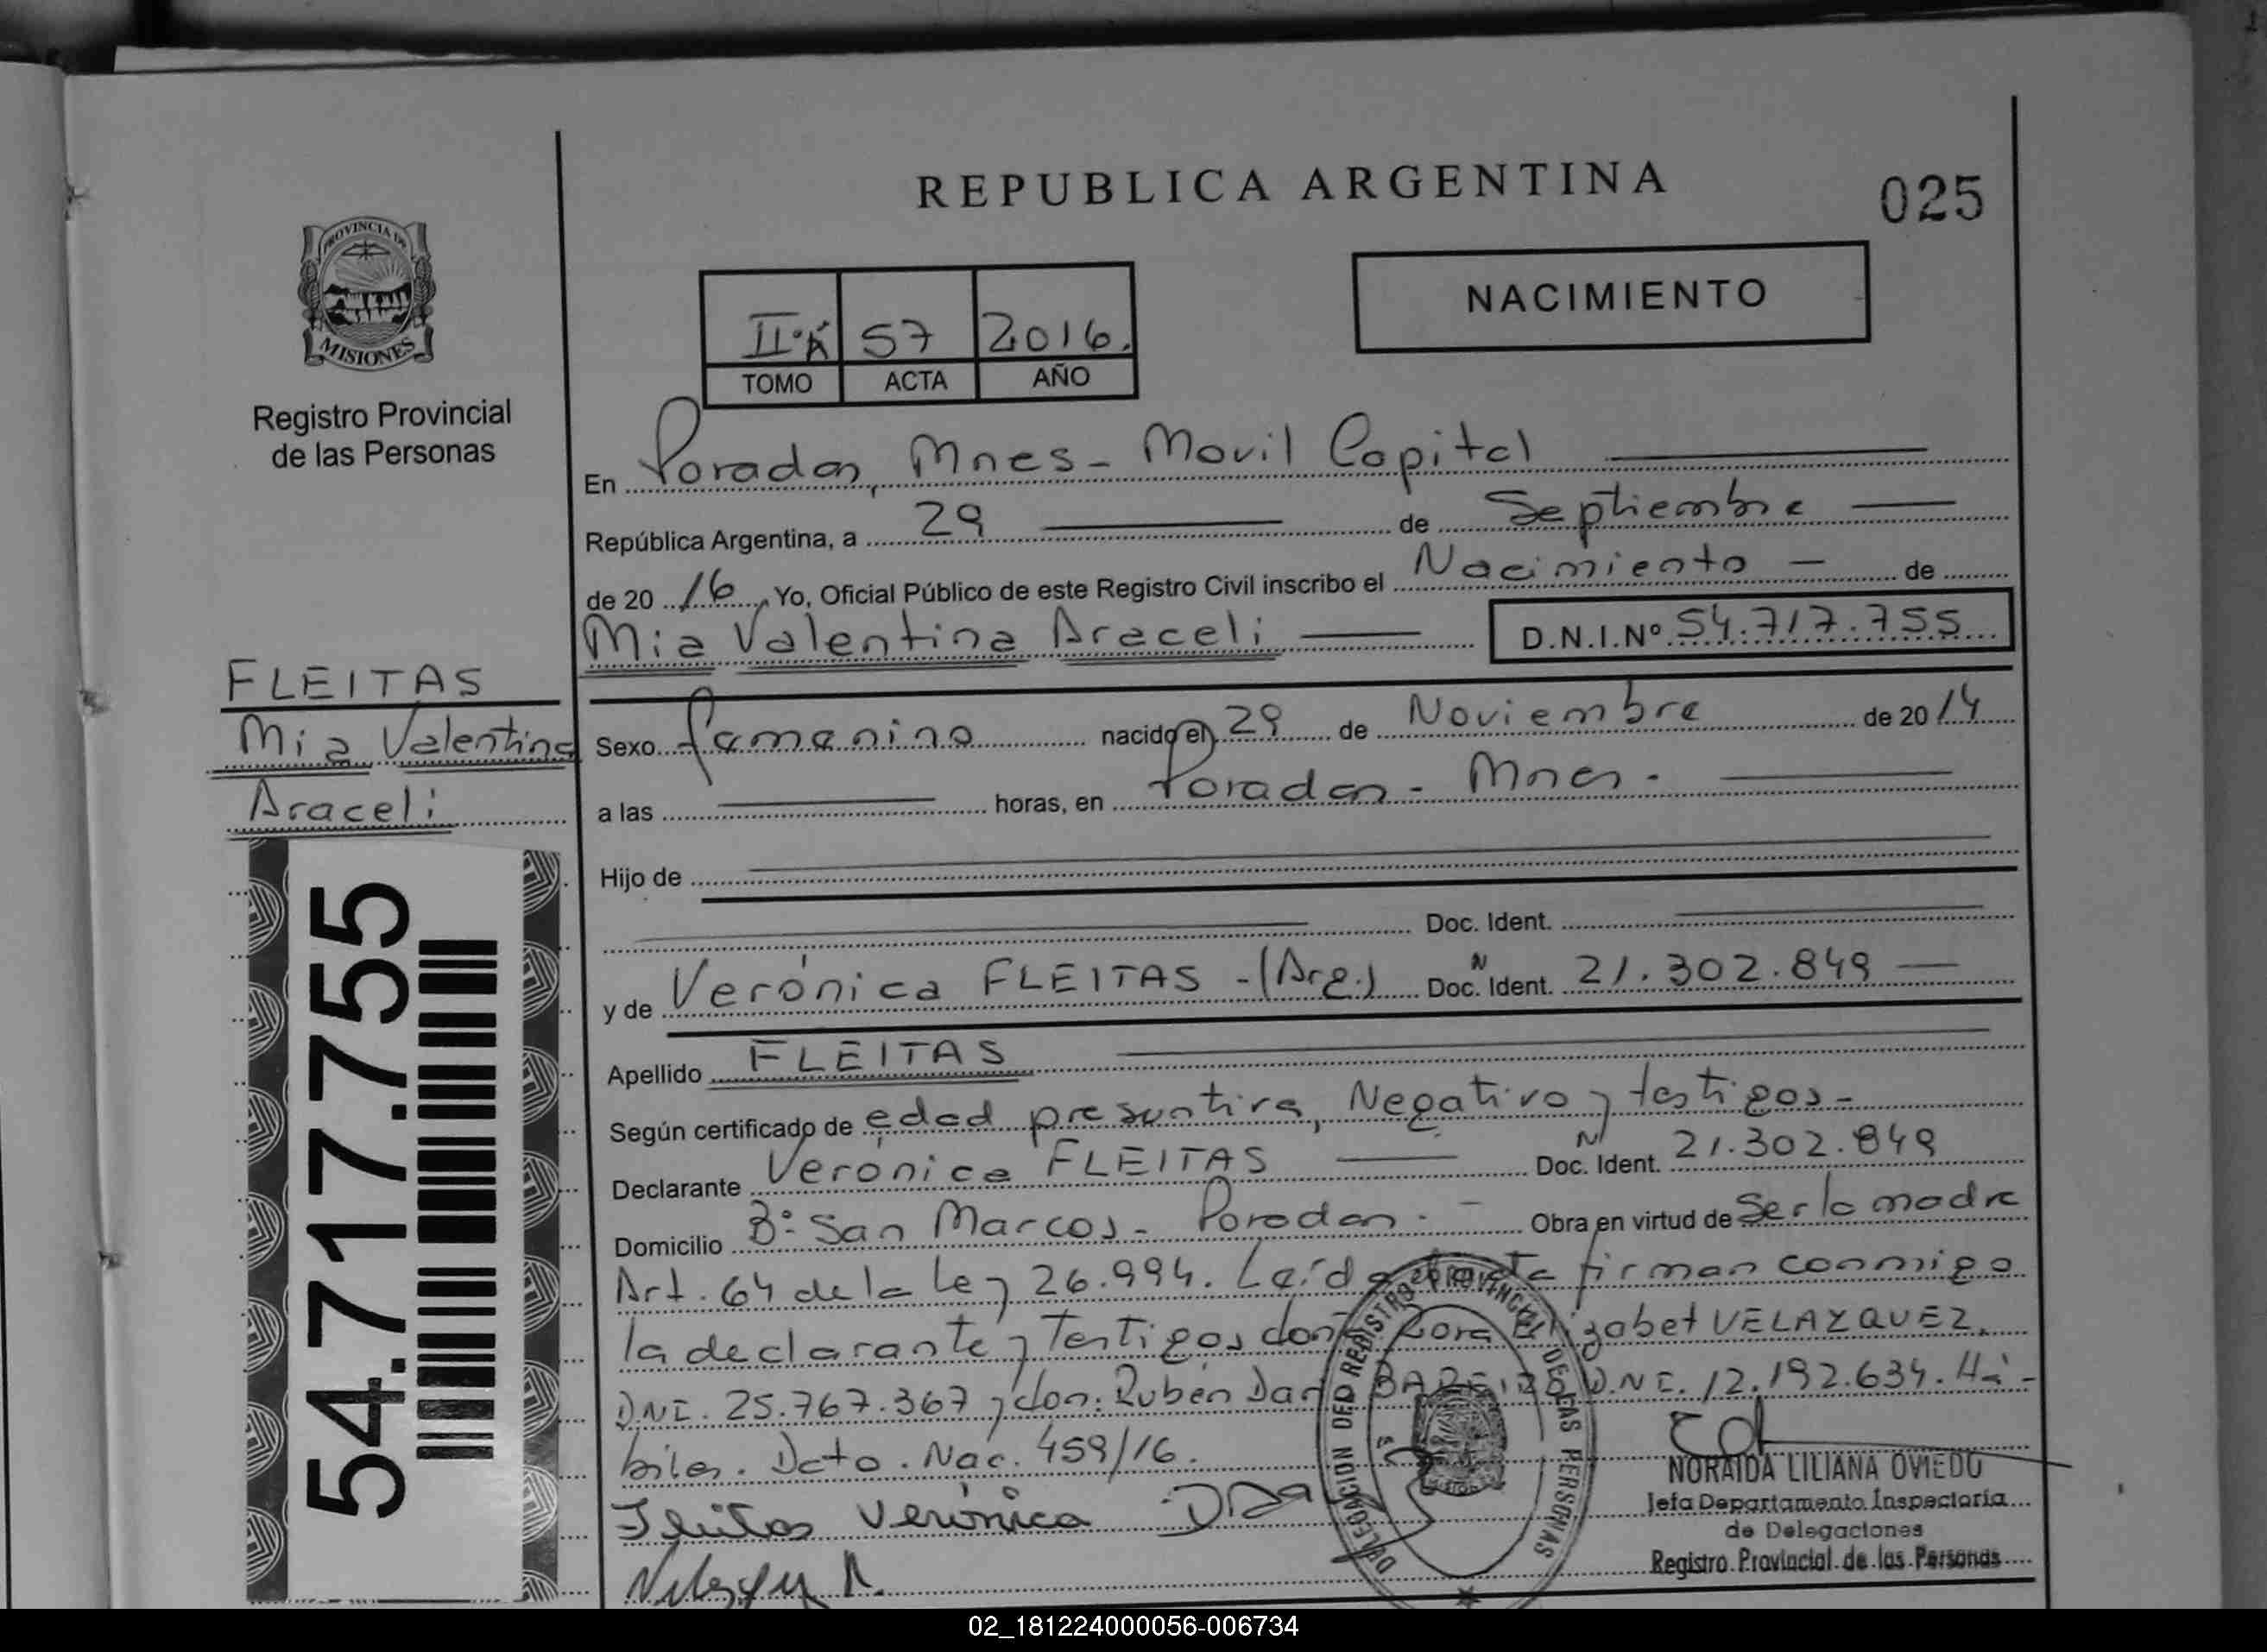 REPUBLICA ARGENTINA
025
PROVINCIA DE
MISIONES
Registro Provincial
de las Personas
II°A 57 2016.
TOMO ACTA AÑO
NACIMIENTO
En Posadas, Mnes - Movil Capital
República Argentina, a 29 de Septiembre
de 20 16, Yo, Oficial Público de este Registro Civil inscribo el Nacimiento - de
Mia Valentina Araceli D.N.I.Nº 54.717.755
FLEITAS
Mia Valentina
Araceli
54.717.755
Sexo femenino nacido el 29 de Noviembre de 20 14
a las horas, en Posadas - Mnes -
Hijo de
Doc. Ident.
y de Verónica FLEITAS - (Arg.) Doc. Ident. N 21.302.849
Apellido FLEITAS
Según certificado de edad presuntiva, Negativo y testigos -
Declarante Verónica FLEITAS Doc. Ident. N 21.302.849
Domicilio B° San Marcos - Posadas - Obra en virtud de Ser la madre
Art. 64 de la Ley 26.994. Leída el acta firman conmigo
la declarante y Testigos doña Elizabet VELAZQUEZ.
D.N.I. 25.767.367 y don: Rubén BAREIRO D.N.I. 12.192.634. Há-
biles. Dcto. Nac. 459/16.
Fleitas Verónica
DELEGACION DEL REGISTRO PROVINCIAL DE LAS PERSONAS
NORAIDA LILIANA OVIEDO
Jefa Departamento Inspectoria
de Delegaciones
Registro Provincial de las Personas
02_181224000056-006734